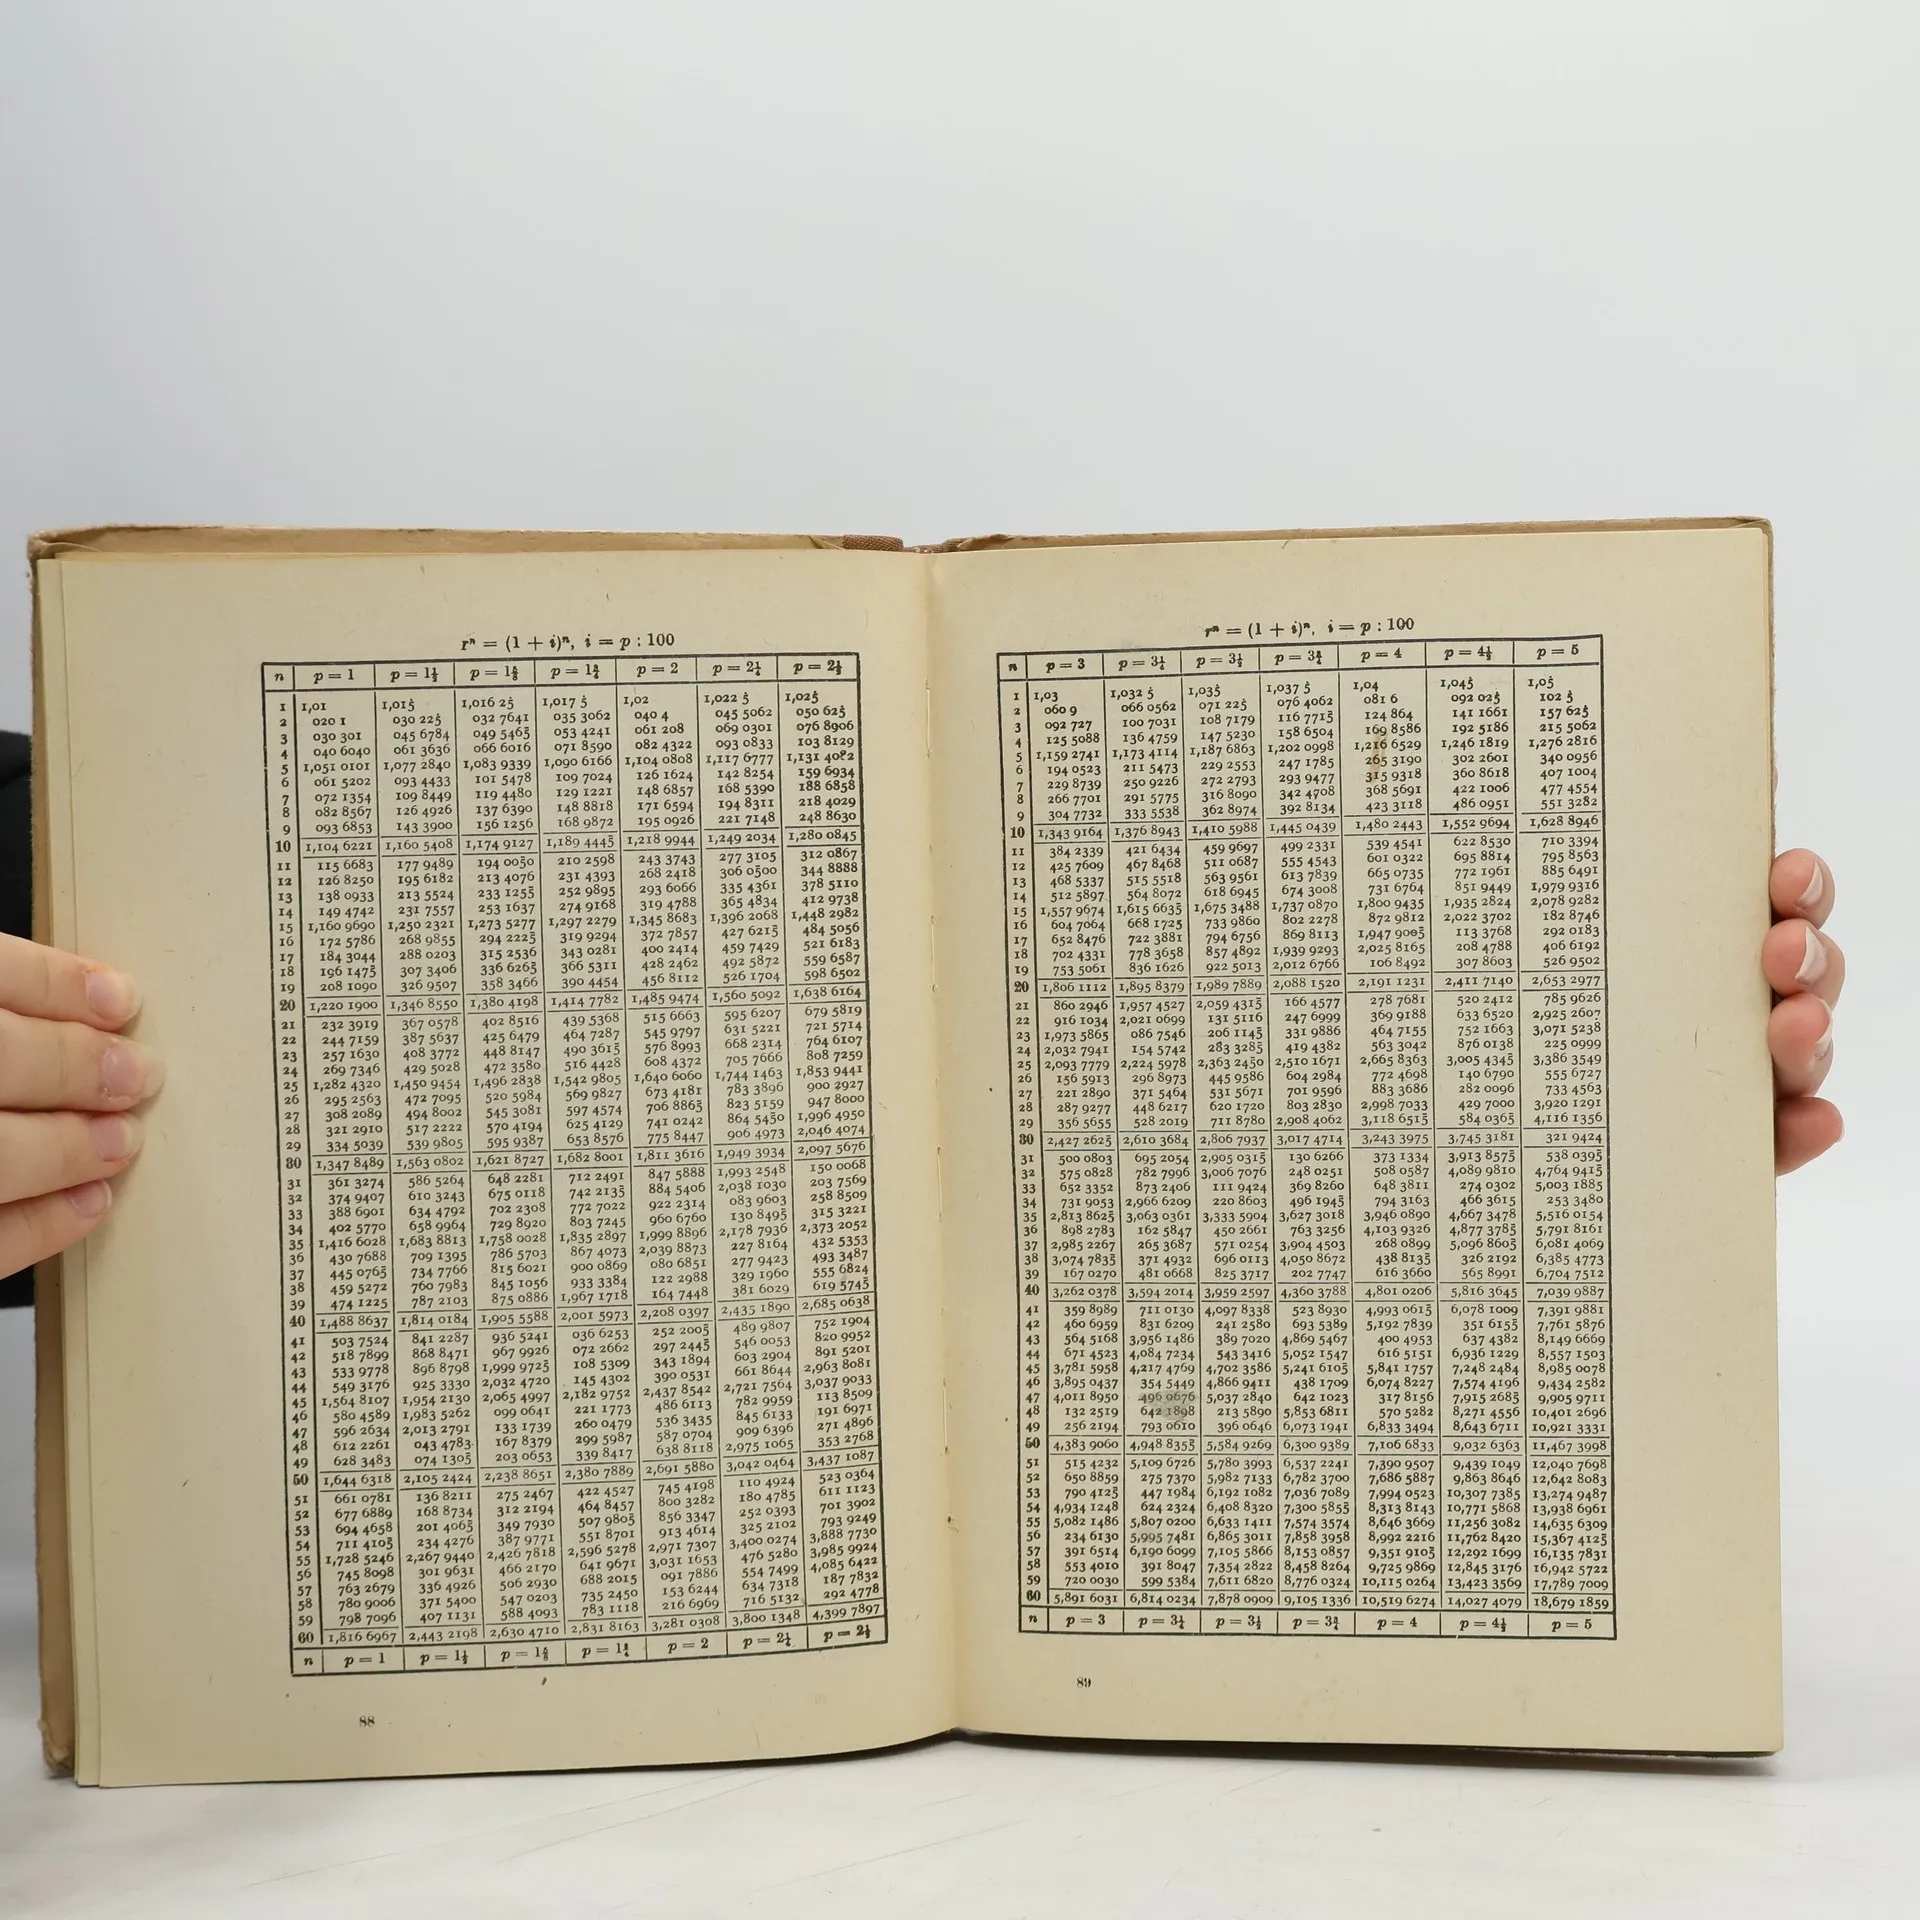 rⁿ = (1 + i)ⁿ, i = p : 100
n p = 1 p = 1½ p = 1⅝ p = 1¾ p = 2 p = 2¼ p = 2½
1 1,01 1,015 1,016 25 1,017 5 1,02 1,022 5 1,025
2 020 1 030 225 032 7641 035 3062 040 4 045 5062 050 625
3 030 301 045 6784 049 5465 053 4241 061 208 069 0301 076 8906
4 040 6040 061 3636 066 6016 071 8590 082 4322 093 0833 103 8129
5 1,051 0101 1,077 2840 1,083 9339 1,090 6166 1,104 0808 1,117 6777 1,131 4082
6 061 5202 093 4433 101 5478 109 7024 126 1624 142 8254 159 6934
7 072 1354 109 8449 119 4480 129 1221 148 6857 168 5390 188 6858
8 082 8567 126 4926 137 6390 148 8818 171 6594 194 8311 218 4029
9 093 6853 143 3900 156 1256 168 9872 195 0926 221 7148 248 8630
10 1,104 6221 1,160 5408 1,174 9127 1,189 4445 1,218 9944 1,249 2034 1,280 0845
11 115 6683 177 9489 194 0050 210 2598 243 3743 277 3105 312 0867
12 126 8250 195 6182 213 4076 231 4393 268 2418 306 0500 344 8888
13 138 0933 213 5524 233 1255 252 9895 293 6066 335 4361 378 5110
14 149 4742 231 7557 253 1637 274 9168 319 4788 365 4834 412 9738
15 1,160 9690 1,250 2321 1,273 5277 1,297 2279 1,345 8683 1,396 2068 1,448 2982
16 172 5786 268 9855 294 2225 319 9294 372 7857 427 6215 484 5056
17 184 3044 288 0203 315 2536 343 0281 400 2414 459 7429 521 6183
18 196 1475 307 3406 336 6265 366 5311 428 2462 492 5872 559 6587
19 208 1090 326 9507 358 3466 390 4454 456 8112 526 1704 598 6502
20 1,220 1900 1,346 8550 1,380 4198 1,414 7782 1,485 9474 1,560 5092 1,638 6164
21 232 3919 367 0578 402 8516 439 5368 515 6663 595 6207 679 5819
22 244 7159 387 5637 425 6479 464 7287 545 9797 631 5221 721 5714
23 257 1630 408 3772 448 8147 490 3615 576 8993 668 2314 764 6107
24 269 7346 429 5028 472 3580 516 4428 608 4372 705 7666 808 7259
25 1,282 4320 1,450 9454 1,496 2838 1,542 9805 1,640 6060 1,744 1463 1,853 9441
26 295 2563 472 7095 520 5984 569 9827 673 4181 783 3896 900 2927
27 308 2089 494 8002 545 3081 597 4574 706 8865 823 5159 947 8000
28 321 2910 517 2222 570 4194 625 4129 741 0242 864 5450 1,996 4950
29 334 5039 539 9805 595 9387 653 8576 775 8447 906 4973 2,046 4074
30 1,347 8489 1,563 0802 1,621 8727 1,682 8001 1,811 3616 1,949 3934 2,097 5676
31 361 3274 586 5264 648 2281 712 2491 847 5888 1,993 2548 150 0068
32 374 9407 610 3243 675 0118 742 2135 884 5406 2,038 1030 203 7569
33 388 6901 634 4792 702 2308 772 7022 922 2314 083 9603 258 8509
34 402 5770 658 9964 729 8920 803 7245 960 6760 130 8495 315 3221
35 1,416 6028 1,683 8813 1,758 0028 1,835 2897 1,999 8896 2,178 7936 2,373 2052
36 430 7688 709 1395 786 5703 867 4073 2,039 8873 227 8164 432 5353
37 445 0765 734 7766 815 6021 900 0869 080 6851 277 9423 493 3487
38 459 5272 760 7983 845 1056 933 3384 122 2988 329 1960 555 6824
39 474 1225 787 2103 875 0886 1,967 1718 164 7448 381 6029 619 5745
40 1,488 8637 1,814 0184 1,905 5588 2,001 5973 2,208 0397 2,435 1890 2,685 0638
41 503 7524 841 2287 936 5241 036 6253 252 2005 489 9807 752 1904
42 518 7899 868 8471 967 9926 072 2662 297 2445 546 0053 820 9952
43 533 9778 896 8798 1,999 9725 108 5309 343 1894 603 2904 891 5201
44 549 3176 925 3330 2,032 4720 145 4302 390 0531 661 8644 2,963 8081
45 1,564 8107 1,954 2130 2,065 4997 2,182 9752 2,437 8542 2,721 7564 3,037 9033
46 580 4589 1,983 5262 099 0641 221 1773 486 6113 782 9959 113 8509
47 596 2634 2,013 2791 133 1739 260 0479 536 3435 845 6133 191 6971
48 612 2261 043 4783 167 8379 299 5987 587 0704 909 6396 271 4896
49 628 3483 074 1305 203 0653 339 8417 638 8118 2,975 1065 353 2768
50 1,644 6318 2,105 2424 2,238 8651 2,380 7889 2,691 5880 3,042 0464 3,437 1087
51 661 0781 136 8211 275 2467 422 4527 745 4198 110 4924 523 0364
52 677 6889 168 8734 312 2194 464 8457 800 3282 180 4785 611 1123
53 694 4658 201 4065 349 7930 507 9805 856 3347 252 0393 701 3902
54 711 4105 234 4276 387 9771 551 8701 913 4614 325 2102 793 9249
55 1,728 5246 2,267 9440 2,426 7818 2,596 5278 2,971 7307 3,400 0274 3,888 7730
56 745 8098 301 9631 466 2170 641 9671 3,031 1653 476 5280 3,985 9924
57 763 2679 336 4926 506 2930 688 2015 091 7886 554 7499 4,085 6422
58 780 9006 371 5400 547 0203 735 2450 153 6244 634 7318 187 7832
59 798 7096 407 1131 588 4093 783 1118 216 6969 716 5132 292 4778
60 1,816 6967 2,443 2198 2,630 4710 2,831 8163 3,281 0308 3,800 1348 4,399 7897
n p = 1 p = 1½ p = 1⅝ p = 1¾ p = 2 p = 2¼ p = 2½
88
rⁿ = (1 + i)ⁿ, i = p : 100
n p = 3 p = 3¼ p = 3½ p = 3¾ p = 4 p = 4½ p = 5
1 1,03 1,032 5 1,035 1,037 5 1,04 1,045 1,05
2 060 9 066 0562 071 225 076 4062 081 6 092 025 102 5
3 092 727 100 7031 108 7179 116 7715 124 864 141 1661 157 625
4 125 5088 136 4759 147 5230 158 6504 169 8586 192 5186 215 5062
5 1,159 2741 1,173 4114 1,187 6863 1,202 0998 1,216 6529 1,246 1819 1,276 2816
6 194 0523 211 5473 229 2553 247 1785 265 3190 302 2601 340 0956
7 229 8739 250 9226 272 2793 293 9477 315 9318 360 8618 407 1004
8 266 7701 291 5775 316 8090 342 4708 368 5691 422 1006 477 4554
9 304 7732 333 5538 362 8974 392 8134 423 3118 486 0951 551 3282
10 1,343 9164 1,376 8943 1,410 5988 1,445 0439 1,480 2443 1,552 9694 1,628 8946
11 384 2339 421 6434 459 9697 499 2331 539 4541 622 8530 710 3394
12 425 7609 467 8468 511 0687 555 4543 601 0322 695 8814 795 8563
13 468 5337 515 5518 563 9561 613 7839 665 0735 772 1961 885 6491
14 512 5897 564 8072 618 6945 674 3008 731 6764 851 9449 1,979 9316
15 1,557 9674 1,615 6635 1,675 3488 1,737 0870 1,800 9435 1,935 2824 2,078 9282
16 604 7064 668 1725 733 9860 802 2278 872 9812 2,022 3702 182 8746
17 652 8476 722 3881 794 6756 869 8113 1,947 9005 113 3768 292 0183
18 702 4331 778 3658 857 4892 1,939 9293 2,025 8165 208 4788 406 6192
19 753 5061 836 1626 922 5013 2,012 6766 106 8492 307 8603 526 9502
20 1,806 1112 1,895 8379 1,989 7889 2,088 1520 2,191 1231 2,411 7140 2,653 2977
21 860 2946 1,957 4527 2,059 4315 166 4577 278 7681 520 2412 785 9626
22 916 1034 2,021 0699 131 5116 247 6999 369 9188 633 6520 2,925 2607
23 1,973 5865 086 7546 206 1145 331 9886 464 7155 752 1663 3,071 5238
24 2,032 7941 154 5742 283 3285 419 4382 563 3042 876 0138 225 0999
25 2,093 7779 2,224 5978 2,363 2450 2,510 1671 2,665 8363 3,005 4345 3,386 3549
26 156 5913 296 8973 445 9586 604 2984 772 4698 140 6790 555 6727
27 221 2890 371 5464 531 5671 701 9596 883 3686 282 0096 733 4563
28 287 9277 448 6217 620 1720 803 2830 2,998 7033 429 7000 3,920 1291
29 356 5655 528 2019 711 8780 2,908 4062 3,118 6515 584 0365 4,116 1356
30 2,427 2625 2,610 3684 2,806 7937 3,017 4714 3,243 3975 3,745 3181 321 9424
31 500 0803 695 2054 2,905 0315 130 6266 373 1334 3,913 8575 538 0395
32 575 0828 782 7996 3,006 7076 248 0251 508 0587 4,089 9810 4,764 9415
33 652 3352 873 2406 111 9424 369 8260 648 3811 274 0302 5,003 1885
34 731 9053 2,966 6209 220 8603 496 1945 794 3163 466 3615 253 3480
35 2,813 8625 3,063 0361 3,333 5904 3,627 3018 3,946 0890 4,667 3478 5,516 0154
36 898 2783 162 5847 450 2661 763 3256 4,103 9326 4,877 3785 5,791 8161
37 2,985 2267 265 3687 571 0254 3,904 4503 268 0899 5,096 8605 6,081 4069
38 3,074 7835 371 4932 696 0113 4,050 8672 438 8135 326 2192 6,385 4773
39 167 0270 481 0668 825 3717 202 7747 616 3660 565 8991 6,704 7512
40 3,262 0378 3,594 2014 3,959 2597 4,360 3788 4,801 0206 5,816 3645 7,039 9887
41 359 8989 711 0130 4,097 8338 523 8930 4,993 0615 6,078 1009 7,391 9881
42 460 6959 831 6209 241 2580 693 5389 5,192 7839 351 6155 7,761 5876
43 564 5168 3,956 1486 389 7020 4,869 5467 400 4953 637 4382 8,149 6669
44 671 4523 4,084 7234 543 3416 5,052 1547 616 5151 6,936 1229 8,557 1503
45 3,781 5958 4,217 4769 4,702 3586 5,241 6105 5,841 1757 7,248 2484 8,985 0078
46 3,895 0437 354 5449 4,866 9411 438 1709 6,074 8227 7,574 4196 9,434 2582
47 4,011 8950 496 0676 5,037 2840 642 1023 317 8156 7,915 2685 9,905 9711
48 132 2519 642 1898 213 5890 5,853 6811 570 5282 8,271 4556 10,401 2696
49 256 2194 793 0610 396 0646 6,073 1941 6,833 3494 8,643 6711 10,921 3331
50 4,383 9060 4,948 8355 5,584 9269 6,300 9389 7,106 6833 9,032 6363 11,467 3998
51 515 4232 5,109 6726 5,780 3993 6,537 2241 7,390 9507 9,439 1049 12,040 7698
52 650 8859 275 7370 5,982 7133 6,782 3700 7,686 5887 9,863 8646 12,642 8083
53 790 4125 447 1984 6,192 1082 7,036 7089 7,994 0523 10,307 7385 13,274 9487
54 4,934 1248 624 2324 6,408 8320 7,300 5855 8,313 8143 10,771 5868 13,938 6961
55 5,082 1486 5,807 0200 6,633 1411 7,574 3574 8,646 3669 11,256 3082 14,635 6309
56 234 6130 5,995 7481 6,865 3011 7,858 3958 8,992 2216 11,762 8420 15,367 4125
57 391 6514 6,190 6099 7,105 5866 8,153 0857 9,351 9105 12,292 1699 16,135 7831
58 553 4010 391 8047 7,354 2822 8,458 8264 9,725 9869 12,845 3176 16,942 5722
59 720 0030 599 5384 7,611 6820 8,776 0324 10,115 0264 13,423 3569 17,789 7009
60 5,891 6031 6,814 0234 7,878 0909 9,105 1336 10,519 6274 14,027 4079 18,679 1859
n p = 3 p = 3¼ p = 3½ p = 3¾ p = 4 p = 4½ p = 5
89